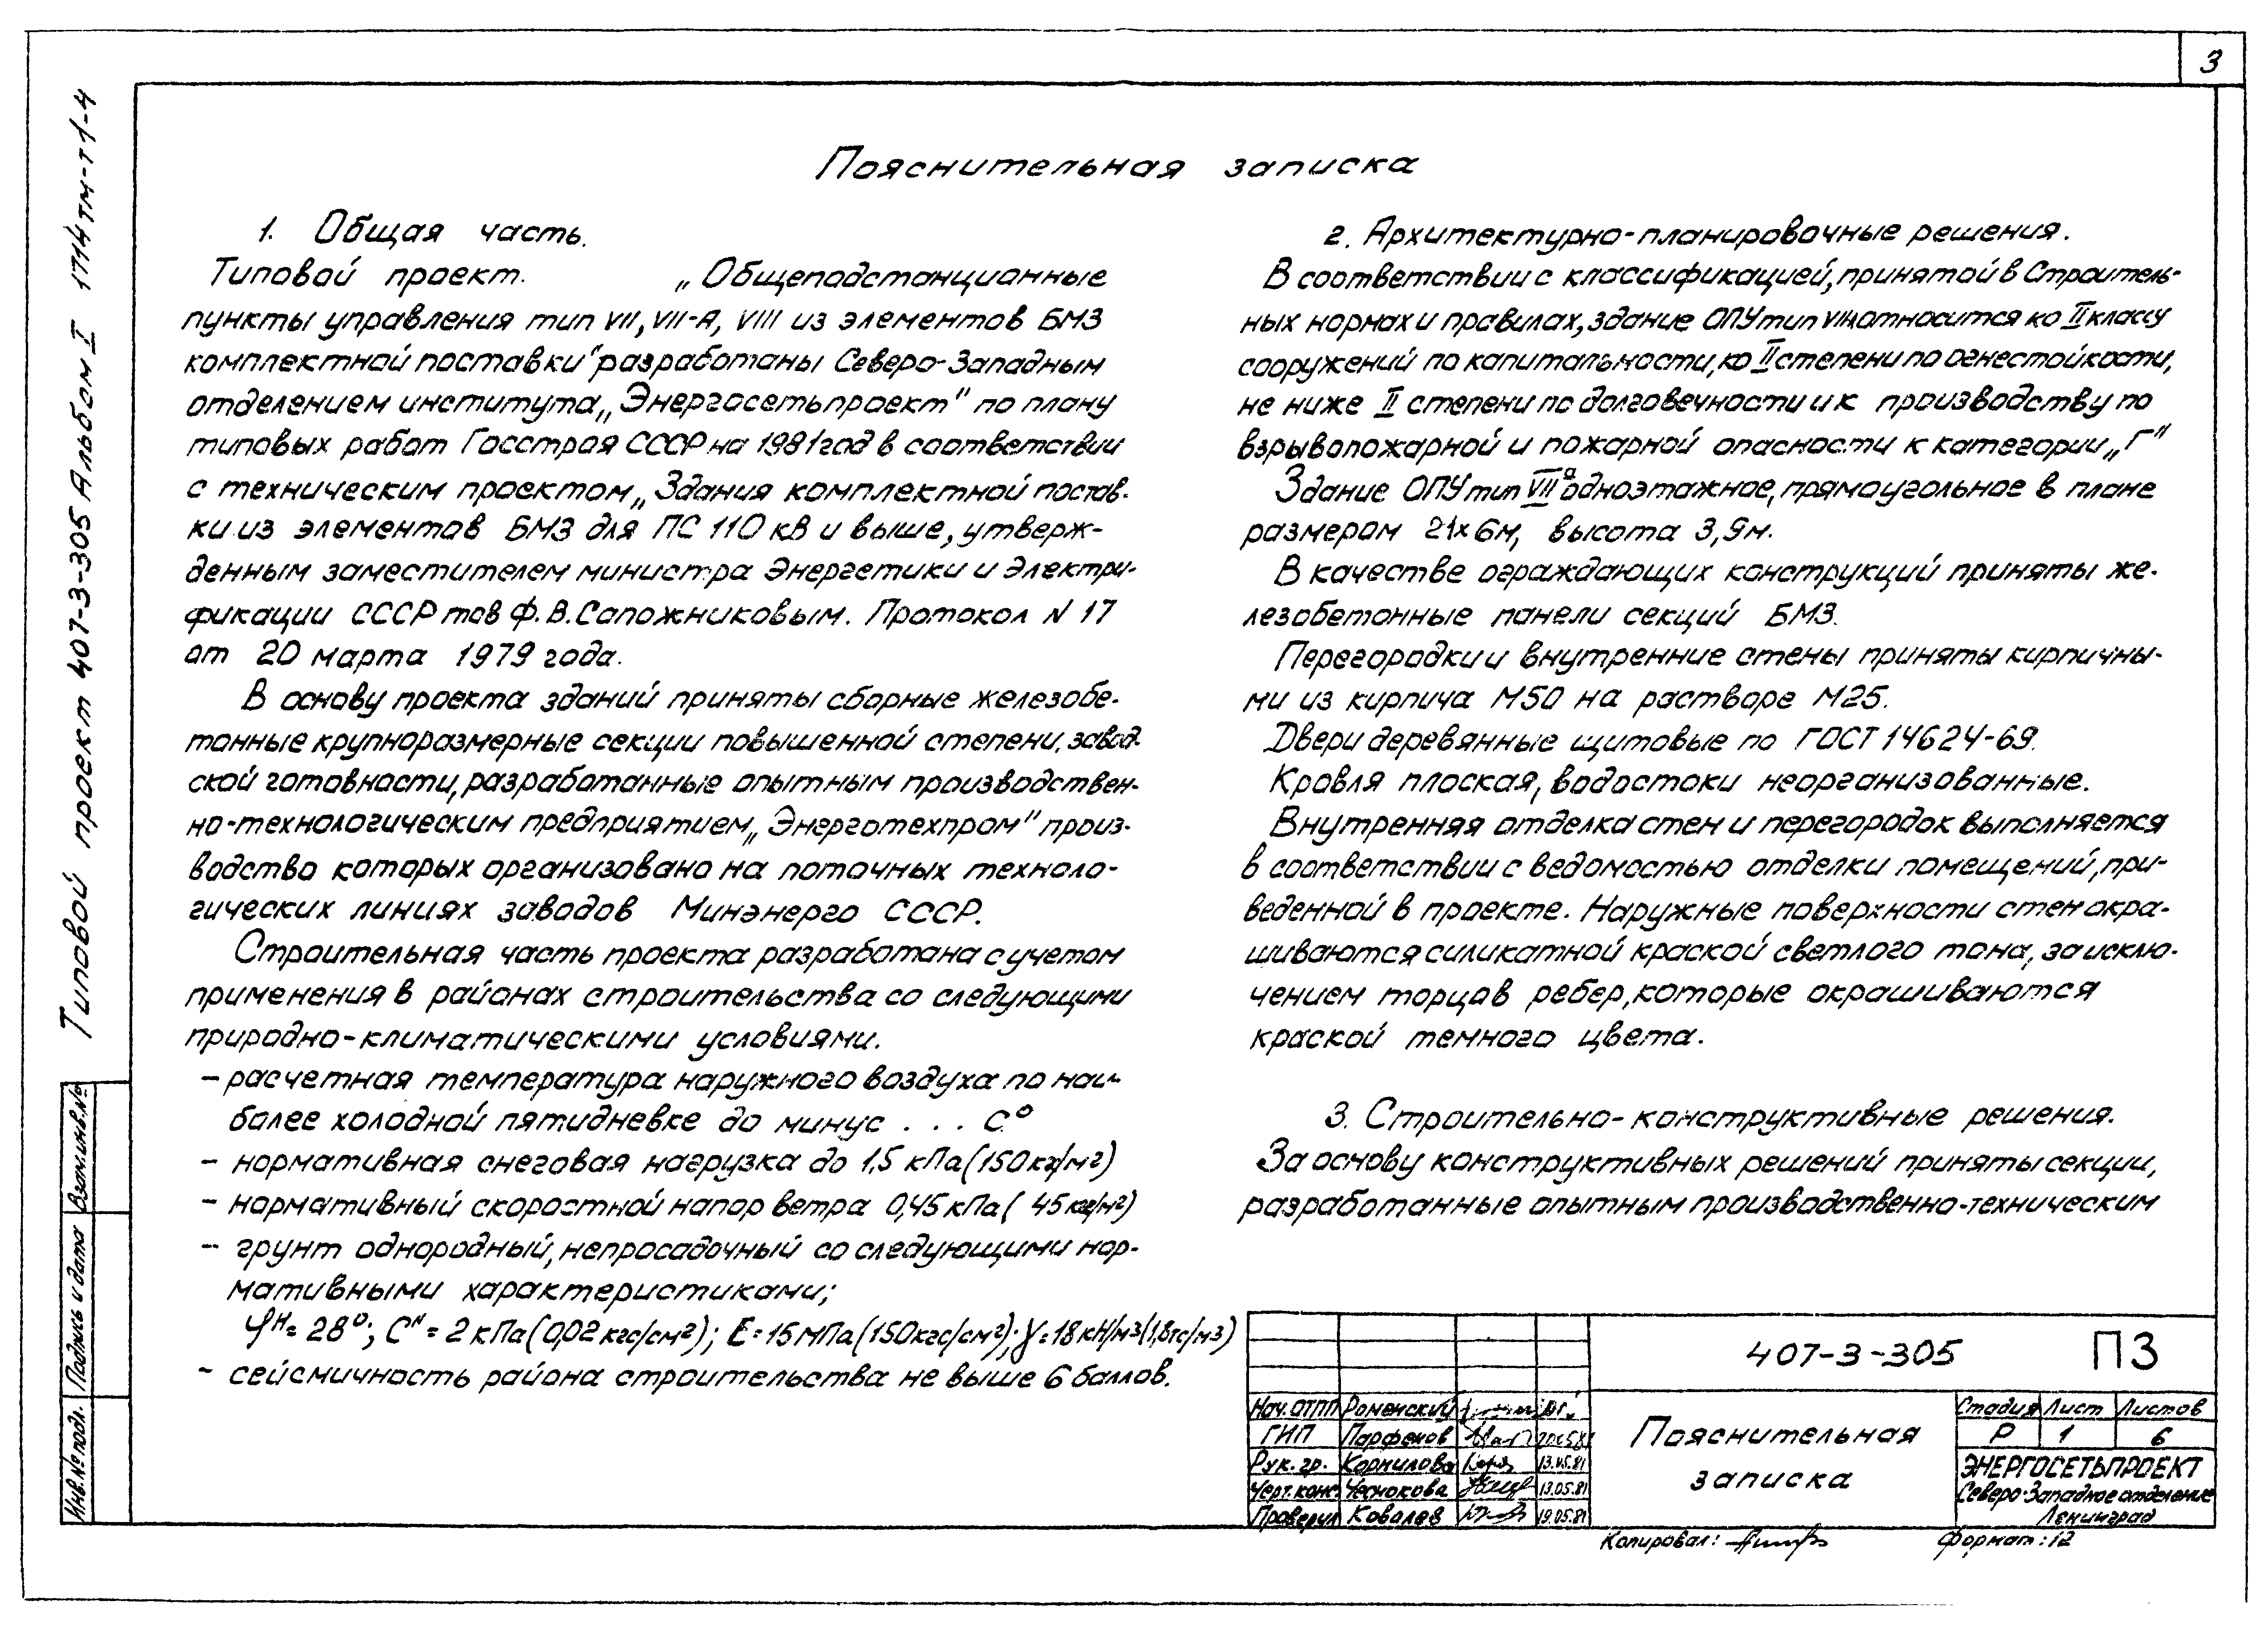 3
Типовой проект 407-3-305 Альбом I 1714тм-т1-4
Пояснительная записка
1. Общая часть.
Типовой проект. „Общеподстанционные
пункты управления тип VII, VII-А, VIII из элементов БМЗ
комплектной поставки" разработаны Северо-Западным
отделением института „Энергосетьпроект" по плану
типовых работ Госстроя СССР на 1981год в соответствии
с техническим проектом „Здания комплектной постав-
ки из элементов БМЗ для ПС 110 кВ и выше, утверж-
денным заместителем министра Энергетики и Электри-
фикации СССР тов Ф.В.Сапожниковым. Протокол N 17
от 20 марта 1979 года.
В основу проекта зданий приняты сборные железобе-
тонные крупноразмерные секции повышенной степени, завод-
ской готовности, разработанные опытным производствен-
но-технологическим предприятием „Энерготехпром" произ-
водство которых организовано на поточных техноло-
гических линиях заводов Минэнерго СССР.
Строительная часть проекта разработана с учетом
применения в районах строительства со следующими
природно-климатическими условиями.
- расчетная температура наружного воздуха по наи-
более холодной пятидневке до минус . . . С°
- нормативная снеговая нагрузка до 1,5 кПа (150кг/м2)
- нормативный скоростной напор ветра 0,45 кПа ( 45кг/м2)
- грунт однородный, непросадочный со следующими нор-
мативными характеристиками;
φн= 28°; Сн = 2 кПа (0,02 кгс/см2); Е = 15 МПа (150кгс/см2); γ = 18 кН/м3 (1,8тс/м3)
- сейсмичность района строительства не выше 6 баллов.
2. Архитектурно-планировочные решения.
В соответствии с классификацией, принятой в Строитель-
ных нормах и правилах, здание ОПУ тип VIIА относится ко II классу
сооружений по капитальности, ко II степени по огнестойкости,
не ниже II степени по долговечности и к производству по
взрывопожарной и пожарной опасности к категории „Г"
Здание ОПУ тип VIIа одноэтажное, прямоугольное в плане
размером 21х6м, высота 3,9м.
В качестве ограждающих конструкций приняты же-
лезобетонные панели секций БМЗ.
Перегородки и внутренние стены приняты кирпичны-
ми из кирпича М50 на растворе М25.
Двери деревянные щитовые по ГОСТ 14624-69.
Кровля плоская, водостоки неорганизованные.
Внутренняя отделка стен и перегородок выполняется
в соответствии с ведомостью отделки помещений, при-
веденной в проекте. Наружные поверхности стен окра-
шиваются силикатной краской светлого тона, за исклю-
чением торцов ребер, которые окрашиваются
краской темного цвета.
3. Строительно-конструктивные решения.
За основу конструктивных решений приняты секции,
разработанные опытным производственно-техническим
407-3-305 ПЗ
Нач. ОТПП Роменский
ГИП Парфенов
Рук. гр. Корнилова 13.05.81
Черт. конс. Чеснокова 13.05.81
Проверил Ковалев 19.05.81
Пояснительная
записка
Стадия Лист Листов
Р 1 6
ЭНЕРГОСЕТЬПРОЕКТ
Северо-Западное отделение
Ленинград
Копировал: Формат: 12
Взам.инв.№
Подпись и дата
Инв.№ подл.